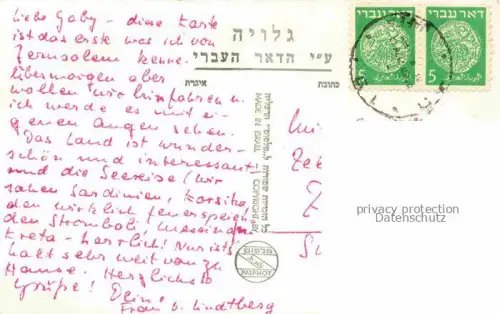 Liebe Gaby - diese Karte
ist das erste was ich von
Jerusalem kenne.
Übermorgen aber
wollen wir hinfahren u.
ich werde es mit ei-
genen Augen sehen.
Das Land ist wunder-
schön und interessant!
und die Seereise (wir
sahen Sardinien, Korsika,
den wirklich feuerspeien-
den Stromboli, Messina,
Kreta - herrlich! Nur ist's
halt sehr weit von zu
Hause. Herzlichste
Grüße! Deine
Frau v. Lindtberg
גלויה
ע״י הדואר העברי
איגרת
כתובת
MADE IN ISRAEL
COPYRIGHT BY
PALPHOT
דאר עברי
דאר עברי
5
privacy protection
Datenschutz